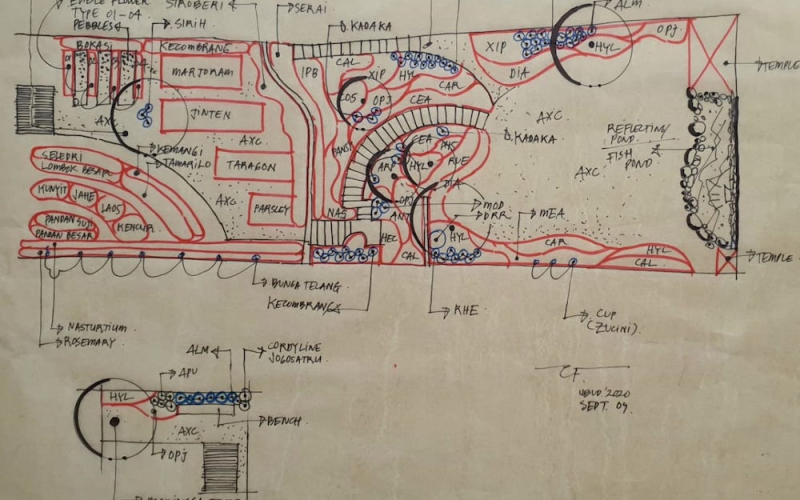 EDIBLE FLOWER
TYPE 01-04
PEBBLES
STROBERI
SIRIH
SERAI
D. KADAKA
ALM
BOKASI
KECOMBRANG
MARJORAM
JINTEN
AXC
AXC
TARAGON
AXC
PARSLEY
KEMANGI
TAMARILO
SELEDRI
LOMBOK BESAR
KUNYIT
JAHE
LAOS
KENCUR
PANDAN SUJI
PANDAN BESAR
IPB
CAL
XIP
HYL
CAR
COS
OPJ
CEA
PANDS
CEA
PHS
RUE
HYL
DIA
OPJ
NAS
HEC
CAL
HYL
XIP
HYL
OPJ
DIA
AXC
D. KADAKA
AXC
REFLECTING
POND.
FISH
POND
TEMPLE
TEMPLE
MOD
DRR
MEA
CAR
HYL
CAL
BUNGA TELANG
KECOMBRANG
RHE
CUP
(ZUCINI).
NASTURTIUM
ROSEMARY
ALM
CORDYLINE
JOGOSATRU
APU
HYL
AXC
BENCH
OPJ
UBUD '2020
SEPT. 09